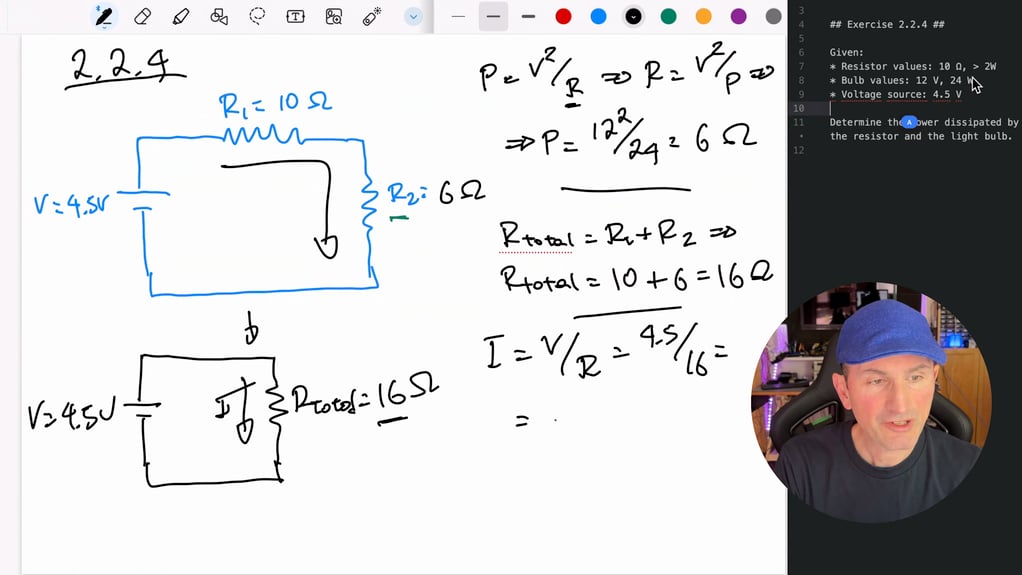 2.2.4
R1 = 10 Ω
V=4.5V
R2= 6Ω
V=4.5V
I
Rtotal=16Ω
P= V²/R ⇒ R = V²/P ⇒
⇒ P= 12²/24 = 6 Ω
Rtotal = R1+R2 ⇒
Rtotal = 10 + 6 = 16 Ω
I = V/R = 4.5/16 =
=
3
4 ## Exercise 2.2.4 ##
5
6 Given:
7 * Resistor values: 10 Ω, > 2W
8 * Bulb values: 12 V, 24 W
9 * Voltage source: 4.5 V
10
11 Determine the power dissipated by
the resistor and the light bulb.
12